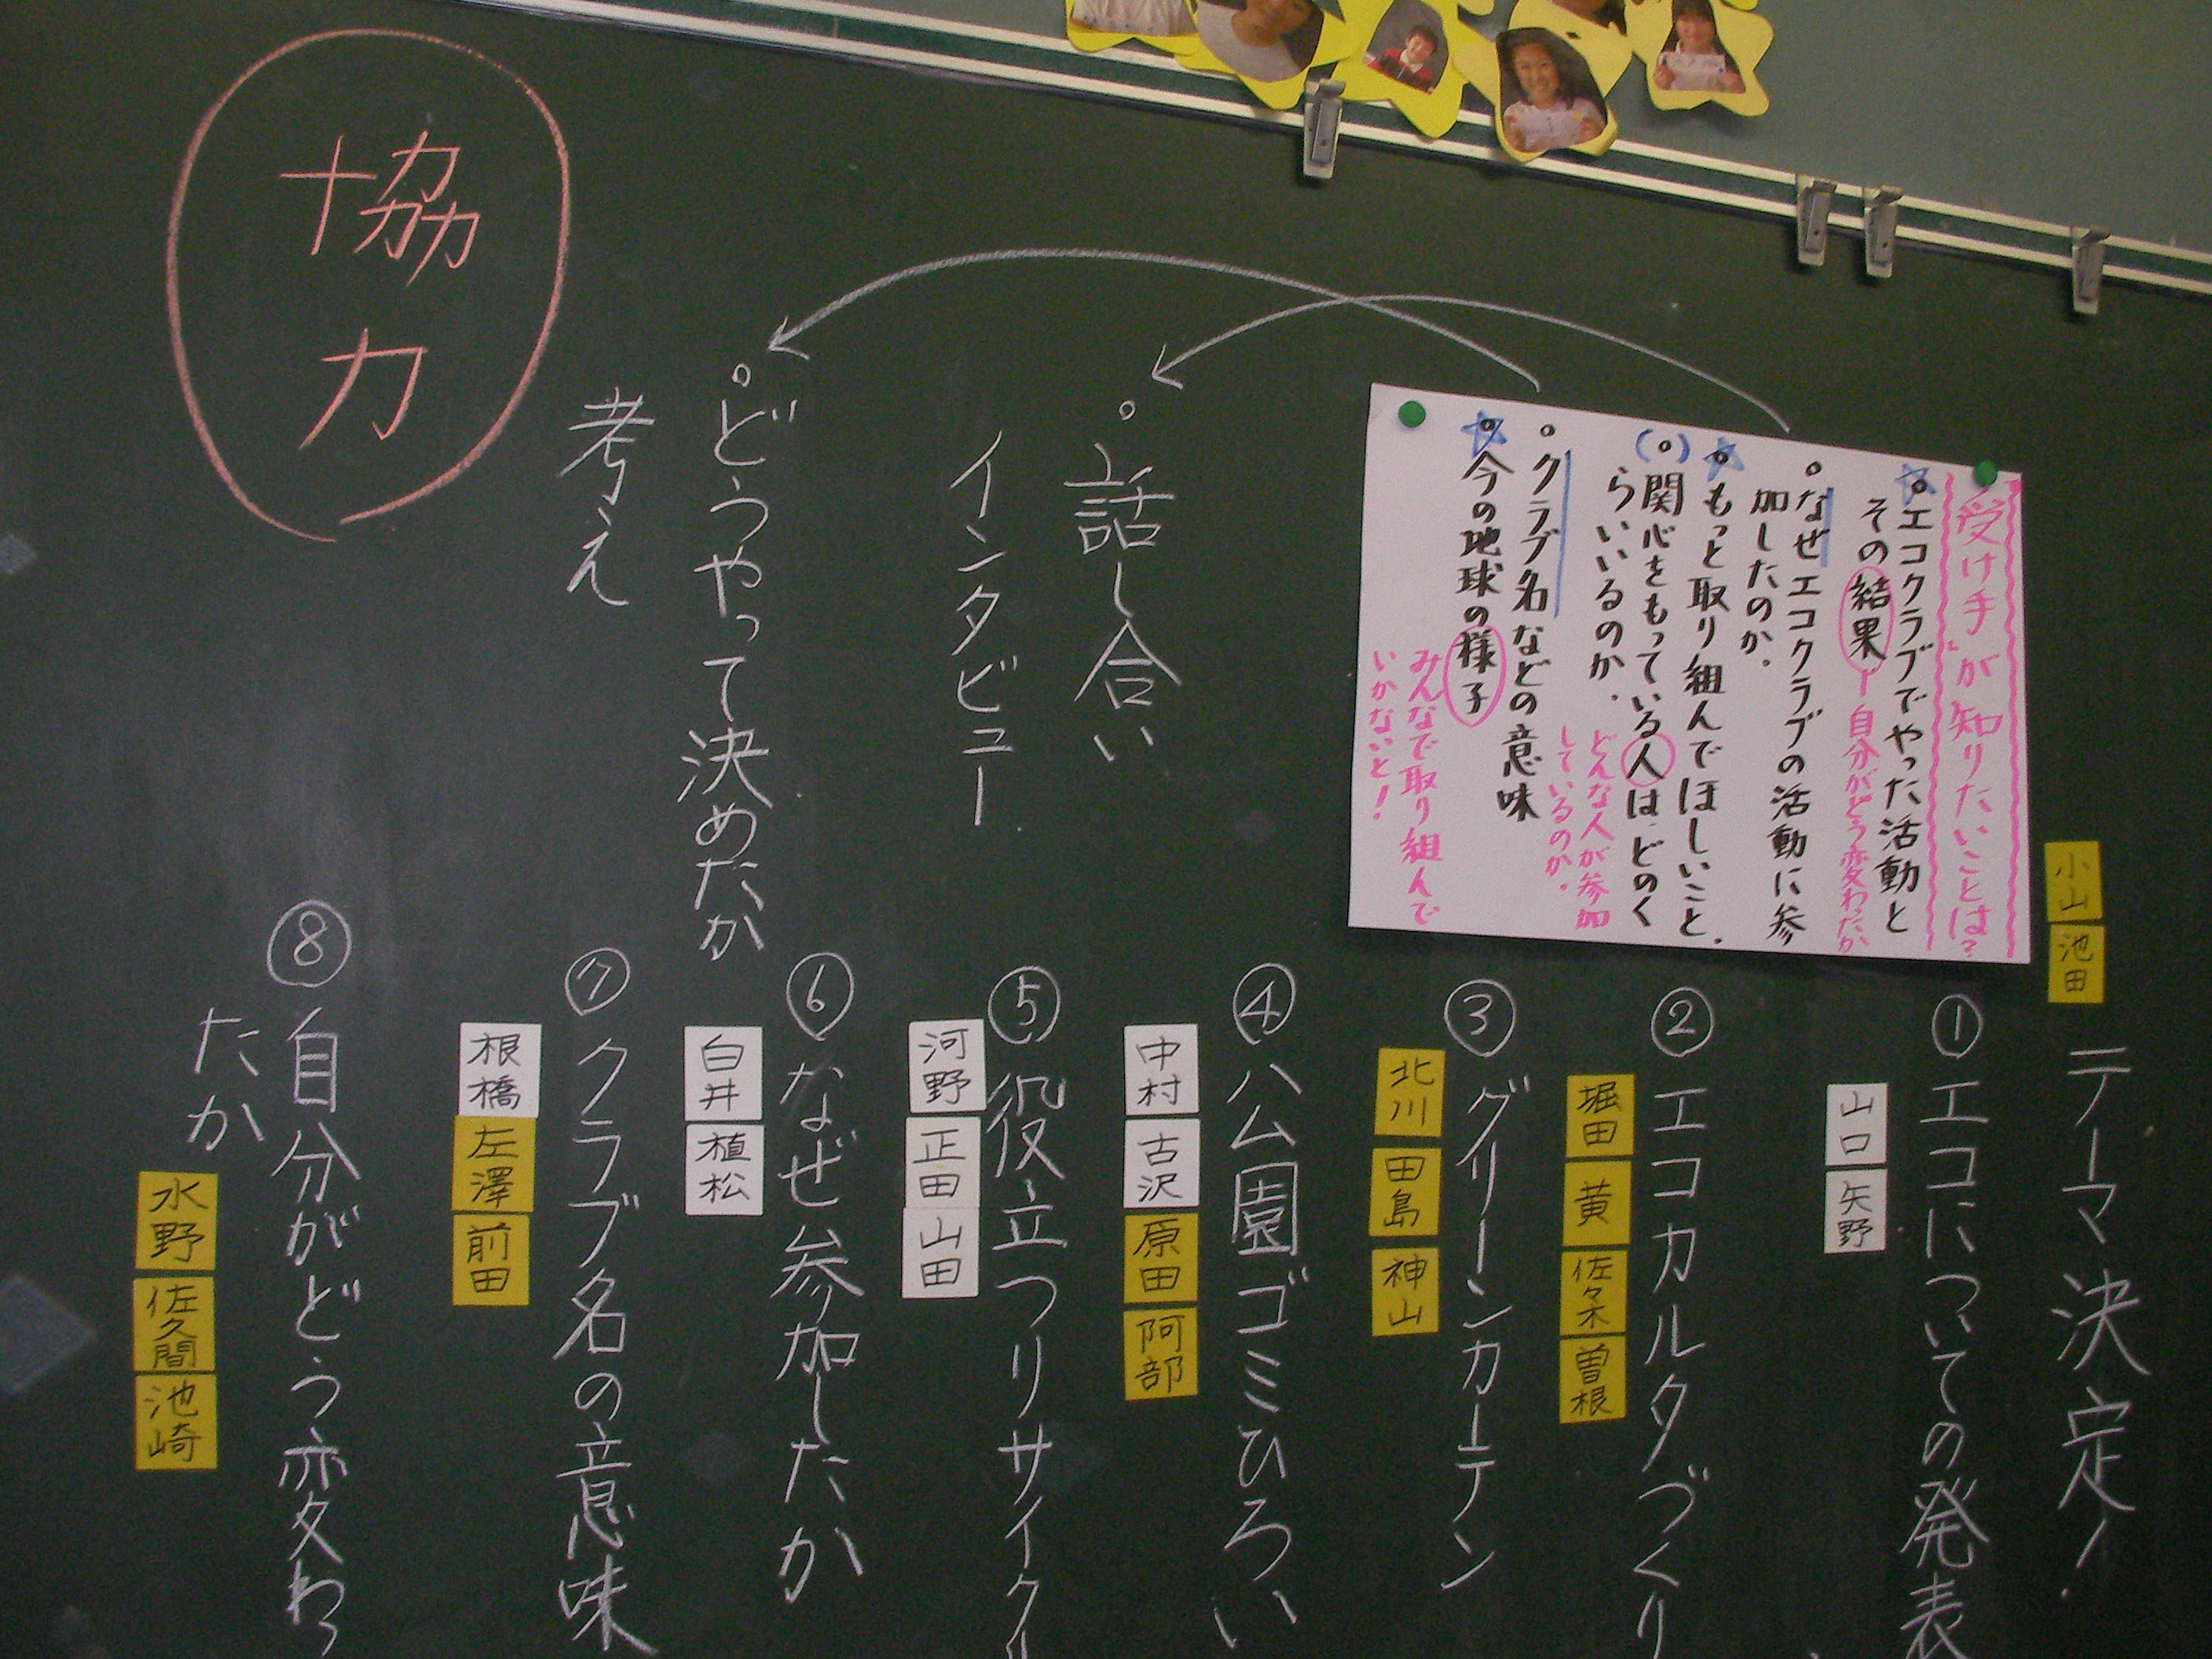 受け手が知りたいことは?
エコクラブでやった活動と
その結果ー自分がどう変わったか
なぜエコクラブの活動に参
加したのか。
もっと取り組んでほしいこと。
(。)関心をもっている人はどのく
らいいるのか。どんな人が参加
しているのか。
クラブ名などの意味
今の地球の様子
みんなで取り組んで
いかないと!
。話し合い
インタビュー
。どうやって決めたか
考え
協力
小山
池田
テーマ決定!
①エコについての発表
山口
矢野
②エコカルタづくり
堀田
黄
佐々木
曽根
③グリーンカーテン
北川
田島
神山
④公園ゴミひろい
中村
古沢
原田
阿部
⑤役立つリサイクル
河野
正田
山田
⑥なぜ参加したか
白井
植松
⑦クラブ名の意味
根橋
左澤
前田
⑧自分がどう変わっ
たか
水野
佐久間
池崎